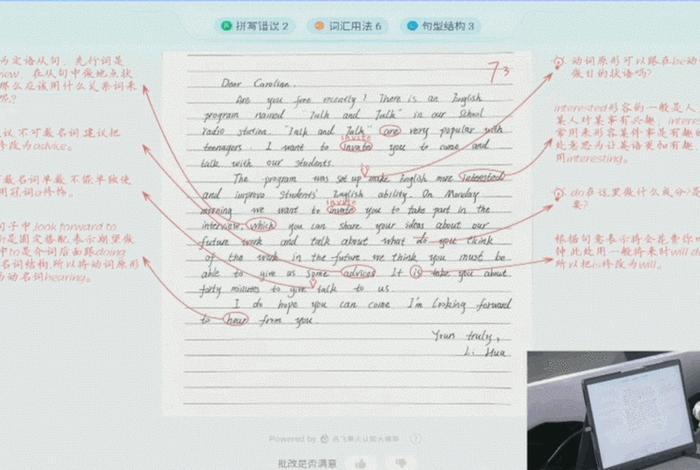 拼写错误 2 词汇用法 6 句型结构 3
73
Dear Caroline.
Are you free recently? There is an English
program named "Talk and Talk" in our School
radio station. "Talk and Talk" are very popular with
invite
teenagers I want to invate you to come and
talk with our students.
The program was set up make English more interested
and improve students' English ability. On Monday
invite
morning we want to invate you to take part in the
interview, which you can share your ideas about our
future work and talk about what do you think
of the work in the future. we think you must be
able to give us some advices It is take you about
forty minutes to give talk to us.
I do hope you can come I'm looking forward
to hear from you.
Yours truly,
Li Hua
为定语从句,先行词是
,在从句中做地点状
那么应该用什么关系词来
议不可数名词,建议把
修改为advice。
可数名词单数不能单独使
用冠词a修饰。
句子中,look forward to
是固定搭配,表示期望做
中to是介词后面跟doing
名词结构,所以将动词原形
为动名词hearing。
动词原形可以跟在be动
做目的状语吗?
interested形容的一般是人
某人对某事有兴趣,
常用来形容某件事是有趣
处意思为让英语更加有趣
用interesting。
do在这里做什么成分?是
要?
根据句意表示将会花费你
钟,此处用一般将来时will do
所以把is修改为will。
Powered by 讯飞星火认知大模型
批改是否满意